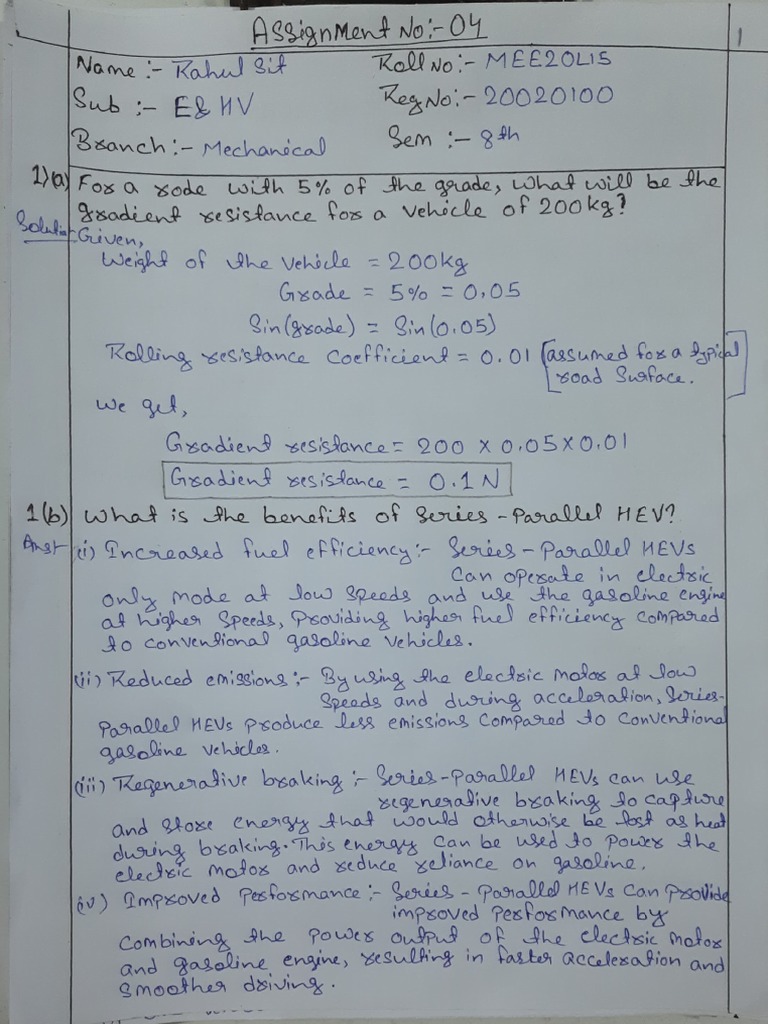 Assignment No:- 04
1
Name :- Rahul Sit
Roll No :- MEE20L15
Sub :- E&HV
Reg No :- 20020100
Branch :- Mechanical
Sem :- 8th
1)(a) For a rode with 5% of the grade, what will be the
gradient resistance for a vehicle of 200kg?
Solution:- Given,
Weight of the vehicle = 200kg
Grade = 5% = 0.05
Sin(grade) = Sin(0.05)
Rolling resistance coefficient = 0.01 [assumed for a typical
road surface.]
We get,
Gradient resistance = 200 x 0.05 x 0.01
Gradient resistance = 0.1 N
1(b) What is the benefits of Series-Parallel HEV?
Ans:- (i) Increased fuel efficiency:- Series-Parallel HEVs
can operate in electric
only mode at low speeds and use the gasoline engine
at higher speeds, providing higher fuel efficiency compared
to conventional gasoline vehicles.
(ii) Reduced emissions:- By using the electric motor at low
speeds and during acceleration, Series-
Parallel HEVs produce less emissions compared to conventional
gasoline vehicles.
(iii) Regenerative braking :- Series-Parallel HEVs can use
regenerative braking to capture
and store energy that would otherwise be lost as heat
during braking. This energy can be used to power the
electric motor and reduce reliance on gasoline.
(iv) Improved Performance:- Series-Parallel HEVs can provide
improved performance by
combining the power output of the electric motor
and gasoline engine, resulting in faster acceleration and
smoother driving.